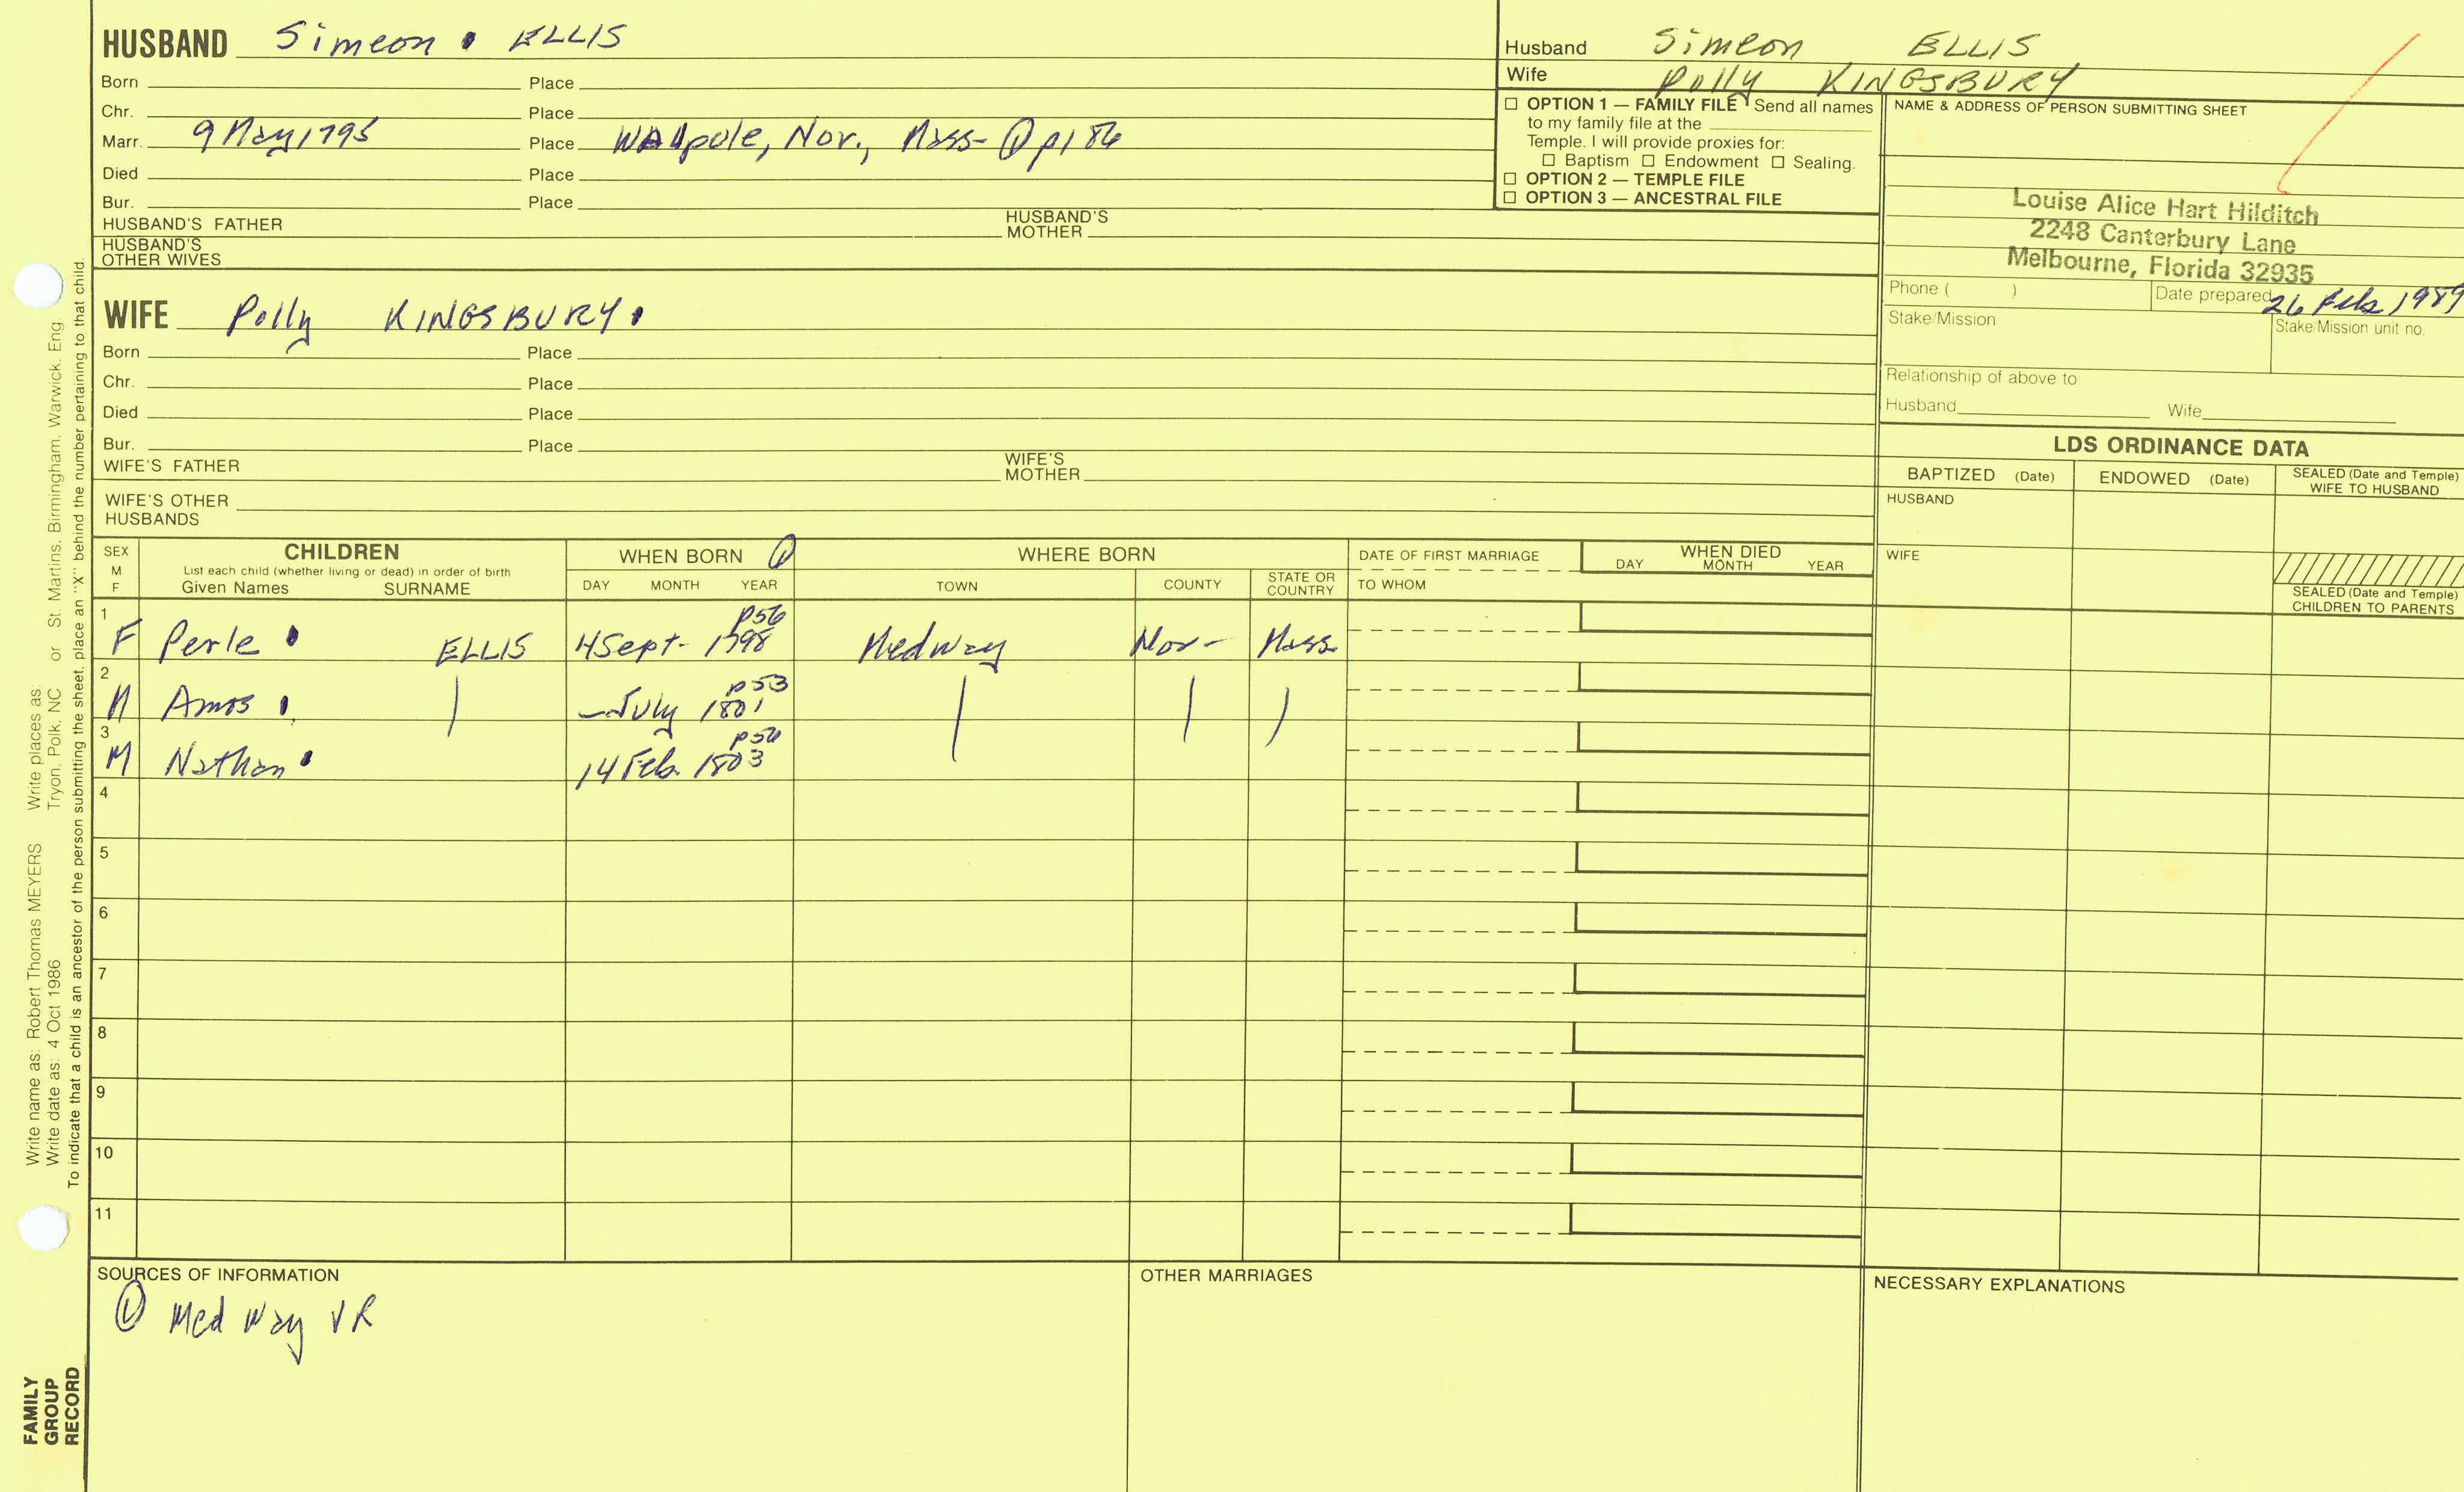 HUSBAND Simeon ELLIS
Born Place
Chr. Place
Marr. 9 May 1795 Place Walpole, Nor., Mass- ① p186
Died Place
Bur. Place
HUSBAND'S FATHER HUSBAND'S MOTHER
HUSBAND'S OTHER WIVES
Husband Simeon ELLIS
Wife Polly KINGSBURY
☐ OPTION 1 — FAMILY FILE Send all names
to my family file at the
Temple. I will provide proxies for:
☐ Baptism ☐ Endowment ☐ Sealing.
☐ OPTION 2 — TEMPLE FILE
☐ OPTION 3 — ANCESTRAL FILE
NAME & ADDRESS OF PERSON SUBMITTING SHEET
Louise Alice Hart Hilditch
2248 Canterbury Lane
Melbourne, Florida 32935
Phone ( ) Date prepared 26 Feb 1989
Stake/Mission Stake/Mission unit no.
Relationship of above to:
Husband Wife
WIFE Polly KINGSBURY
Born Place
Chr. Place
Died Place
Bur. Place
WIFE'S FATHER WIFE'S MOTHER
WIFE'S OTHER HUSBANDS
LDS ORDINANCE DATA
BAPTIZED (Date) ENDOWED (Date) SEALED (Date and Temple) WIFE TO HUSBAND
HUSBAND
WIFE
SEALED (Date and Temple) CHILDREN TO PARENTS
SEX M F
CHILDREN
List each child (whether living or dead) in order of birth
Given Names SURNAME
WHEN BORN ①
DAY MONTH YEAR
WHERE BORN
TOWN COUNTY STATE OR COUNTRY
DATE OF FIRST MARRIAGE
TO WHOM
WHEN DIED
DAY MONTH YEAR
1 F Perle ELLIS 4 Sept- 1798 p56 Medway Nor- Mass
2 M Amos | — July 1801 p53 | | |
3 M Nathan 14 Feb. 1803 p56
4
5
6
7
8
9
10
11
SOURCES OF INFORMATION
① Medway VR
OTHER MARRIAGES
NECESSARY EXPLANATIONS
Write name as: Robert Thomas MEYERS Write places as:
Write date as: 4 Oct 1986 Tryon, Polk, NC or St. Martins, Birmingham, Warwick, Eng.
To indicate that a child is an ancestor of the person submitting the sheet, place an "X" behind the number pertaining to that child.
FAMILY
GROUP
RECORD